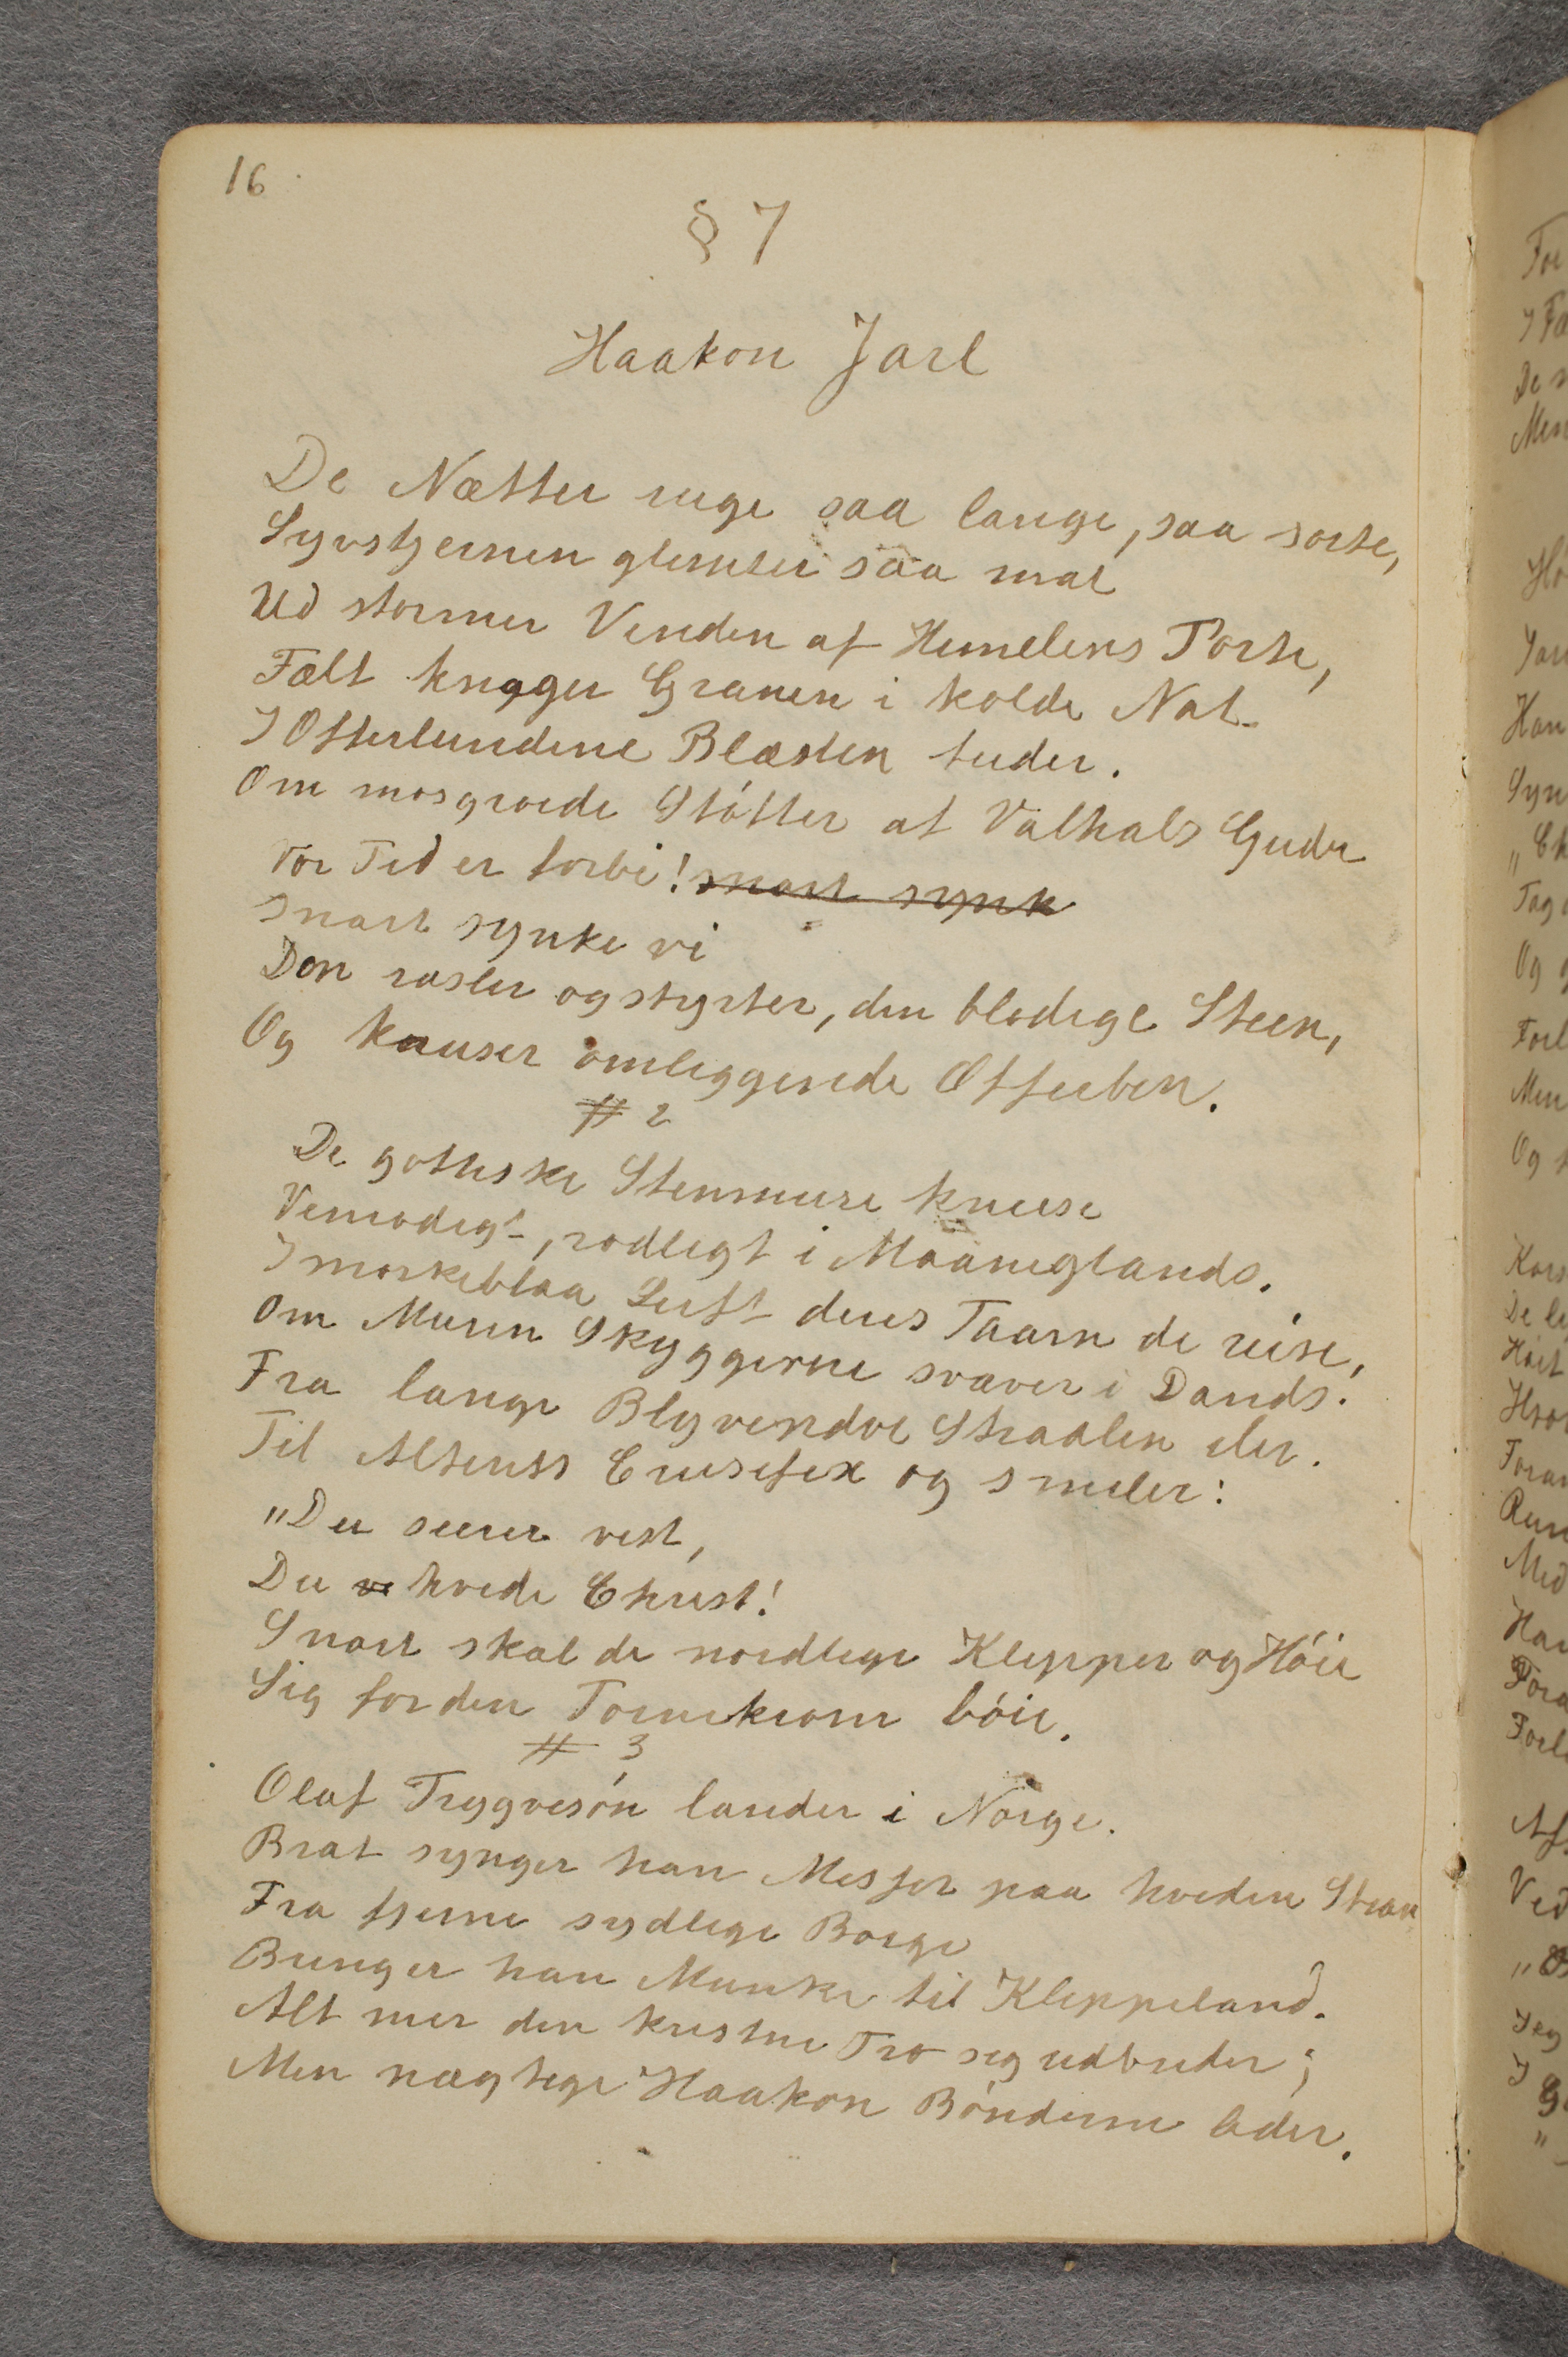 16
§ 7
Haakon Jarl
De Nætter ruge saa lange, saa sorte,
Syvstjernen glimter saa mat
Ud stormer Vinden af Himelens Porte,
Fælt knager Granen i kolde Nat.
I Offerlundene Blæsten tuder.
Om mosgroede Støtter af Valhals Guder
Vor Tid er forbi! snart synk
Snart synke vi
Den rasler og styrter, den blodige Steen,
Og knuser omliggende Offerben.
# 2
De gothiske Stenmure kneise
Vemodigt, rødligt i Maaneglands.
I mørkeblaa Luft deres Taarn de reise,
Om Muren Skyggerne svæver i Dands.
Fra lange Blyvindve Straalen iler.
Til Alterets Crusifix og smiler:
"Du seirer vist,
Du hvide Christ!
Snart skal de nordlige Klipper og Høie
Sig for din Tornekrone bøie.
# 3
Olaf Trygvesøn lander i Norge.
Brat synger han Messer paa hviden Stran
Fra fjerne sydlige Borge
Bringer han Munke til Klippeland.
Alt mer den kristne Tro sig udbreder;
Men nægtige Haakon Bønderne leder.
For
De
Men
Han
Syn
Og
Men
Og
De li
Med
Ved
Jeg
I